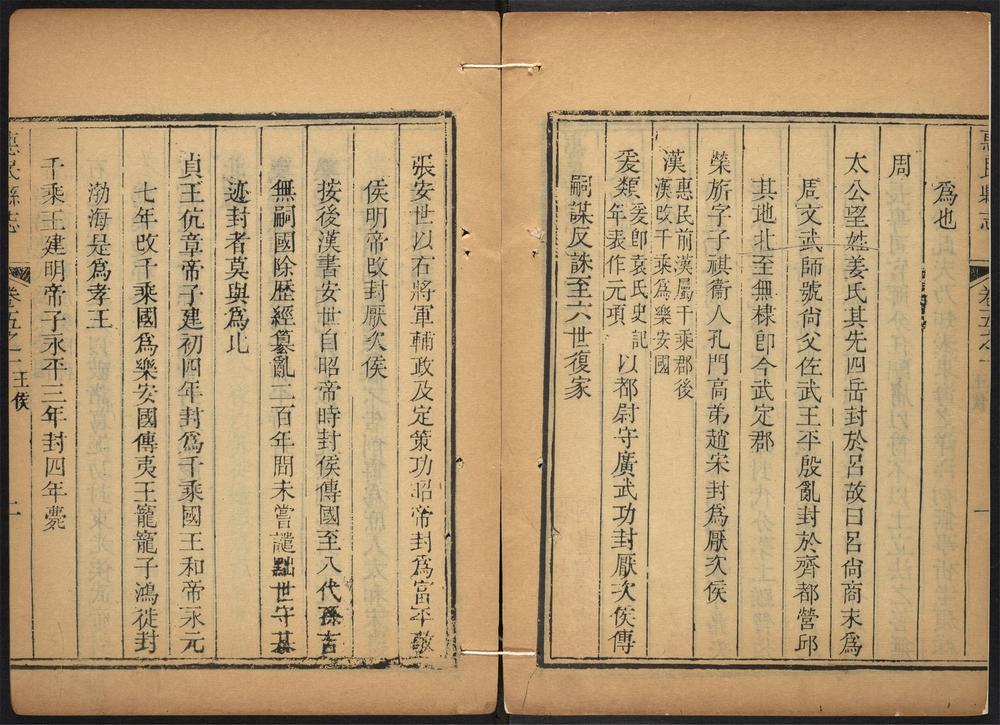 惠民縣志
卷五之一
一
爲也
周
太公望姓姜氏其先四岳封於呂故曰呂尚商末爲
周文武師號尙父佐武王平殷亂封於齊都營邱
其地北至無棣卽今武定郡
榮旂字子祺衞人孔門高弟趙宋封爲厭次侯
漢惠民前漢屬千乘郡後
漢改千乘爲樂安國
爰類爰卽袁氏史記
年表作元項以都尉守廣武功封厭次侯傳
嗣謀反誅至六世復家
張安世以石將軍輔政及定策功昭帝封爲富平敬
侯明帝改封厭次侯
按後漢書安世自昭帝時封侯傳國至八代孫吉
無嗣國除歴經纂亂二百年間未嘗譴黜世守基
迹封者莫與爲比
貞王伉章帝子建初四年封爲千乘國王和帝永元
七年改千乘國爲樂安國傳夷王寵寵子鴻徙封
渤海是爲孝王
千乘王建明帝子永平三年封四年薨
惠民縣志
卷五之一
王侯
二